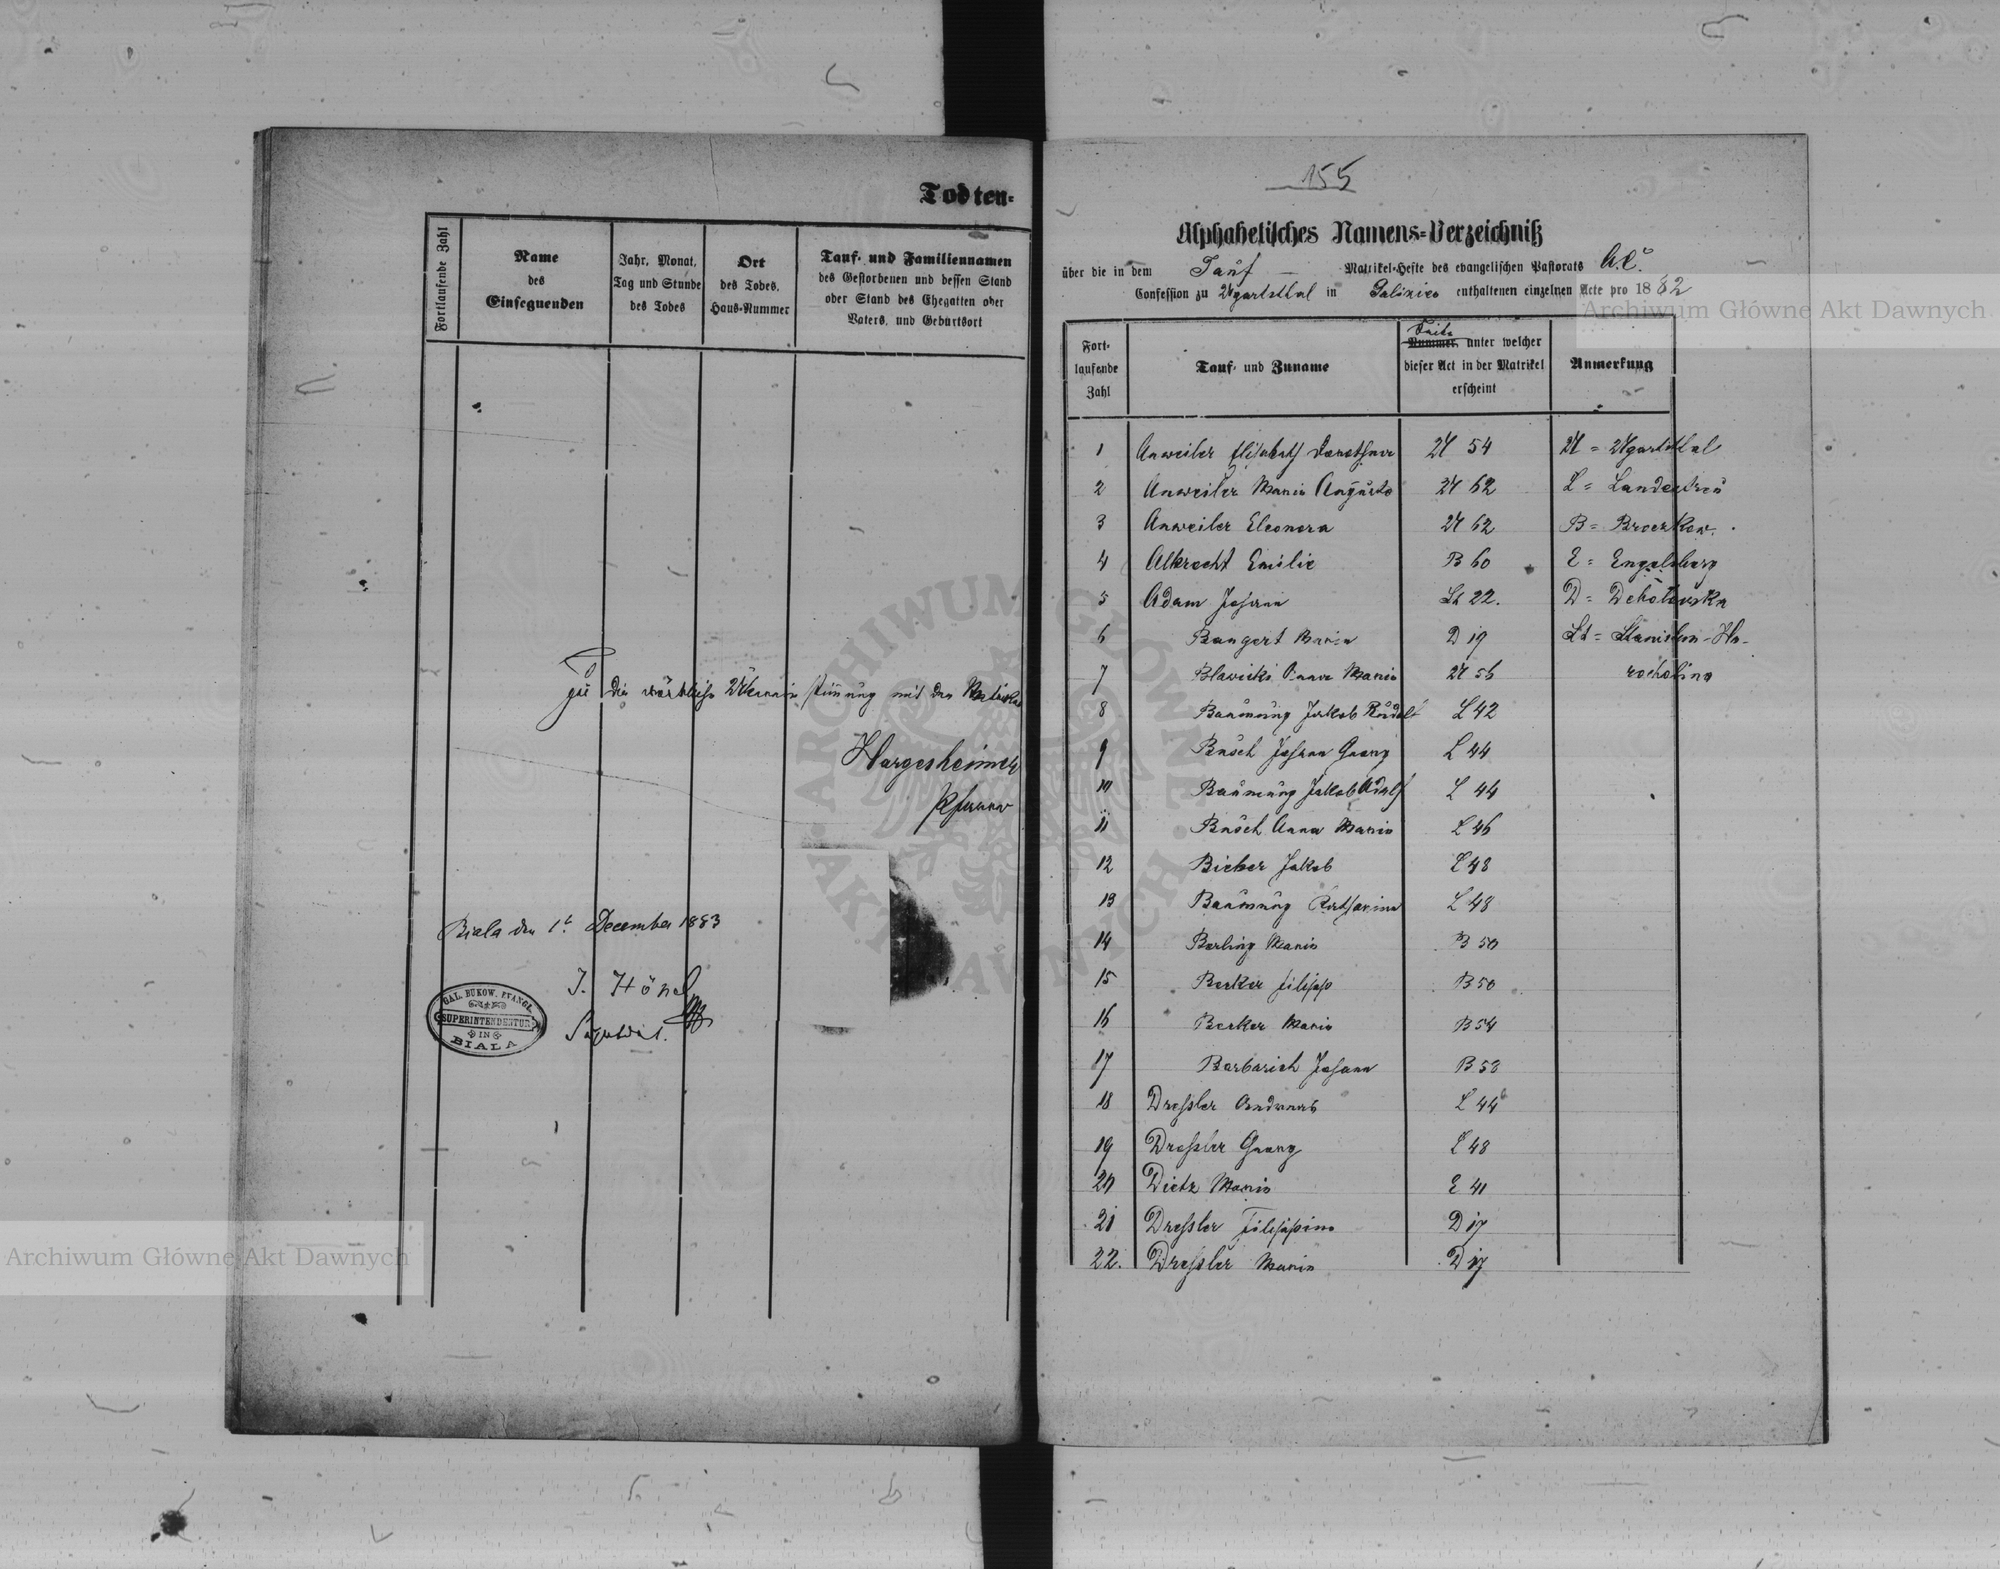 Todten-
Fortlaufende Zahl
Name
des
Einsegnenden
Jahr, Monat,
Tag und Stunde
des Todes
Ort
des Todes,
Haus-Nummer
Tauf- und Familiennamen
des Gestorbenen und dessen Stand
oder Stand des Ehegatten oder
Vaters, und Geburtsort
für die wörtliche Übereinstimmung mit den Matriken
Hargesheimer
Pfarrer
Biala den 1t December 1883
J. Hönel
GAL. BUKOW. EVANGL.
SUPERINTENDENTUR
IN
BIALA
155
Alphabetisches Namens-Verzeichniß
über die in dem Tauf — Matrikel-Hefte des evangelischen Pastorats A.C.
Confession zu Ugartsthal in Galizien enthaltenen einzelnen Acte pro 1882
Fort-
laufende
Zahl
Tauf- und Zuname
Seite
Nummer, unter welcher
dieser Act in der Matrikel
erscheint
Anmerkung
1 Anweiler Elisabeth Dorothea U 54 U = Ugartsthal
2 Anweiler Maria Auguste U 62 L = Landestreu
3 Anweiler Eleonora U 62 B = Broczkow.
4 Albrecht Emilie B 60 E = Engelsberg
5 Adam Johann St 22. D = Debolowska
6 Bangert Maria D 19 St = Stanislau-Ha-
7 Blavicki Anna Maria U 56
8 Baumung Jakob Rudolf L 42
9 Busch Johann Georg L 44
10 Baumung Jakob Adolf L 44
11 Busch Anna Maria L 46
12 Bieber Jakob L 48
13 Baumung Katharina L 48
14 Berling Maria B 50
15 Becker Filipp B 50
16 Becker Maria B 54
17 Barbarich Johann B 58
18 Dreßler Andreas L 44
19 Dreßler Georg L 48
20 Dietz Maria E 41
21 Dreßler Filippine D 17
22. Dreßler Maria D 17
Archiwum Główne Akt Dawnych
Archiwum Główne Akt Dawnych
ARCHIWUM GŁÓWNE AKT DAWNYCH